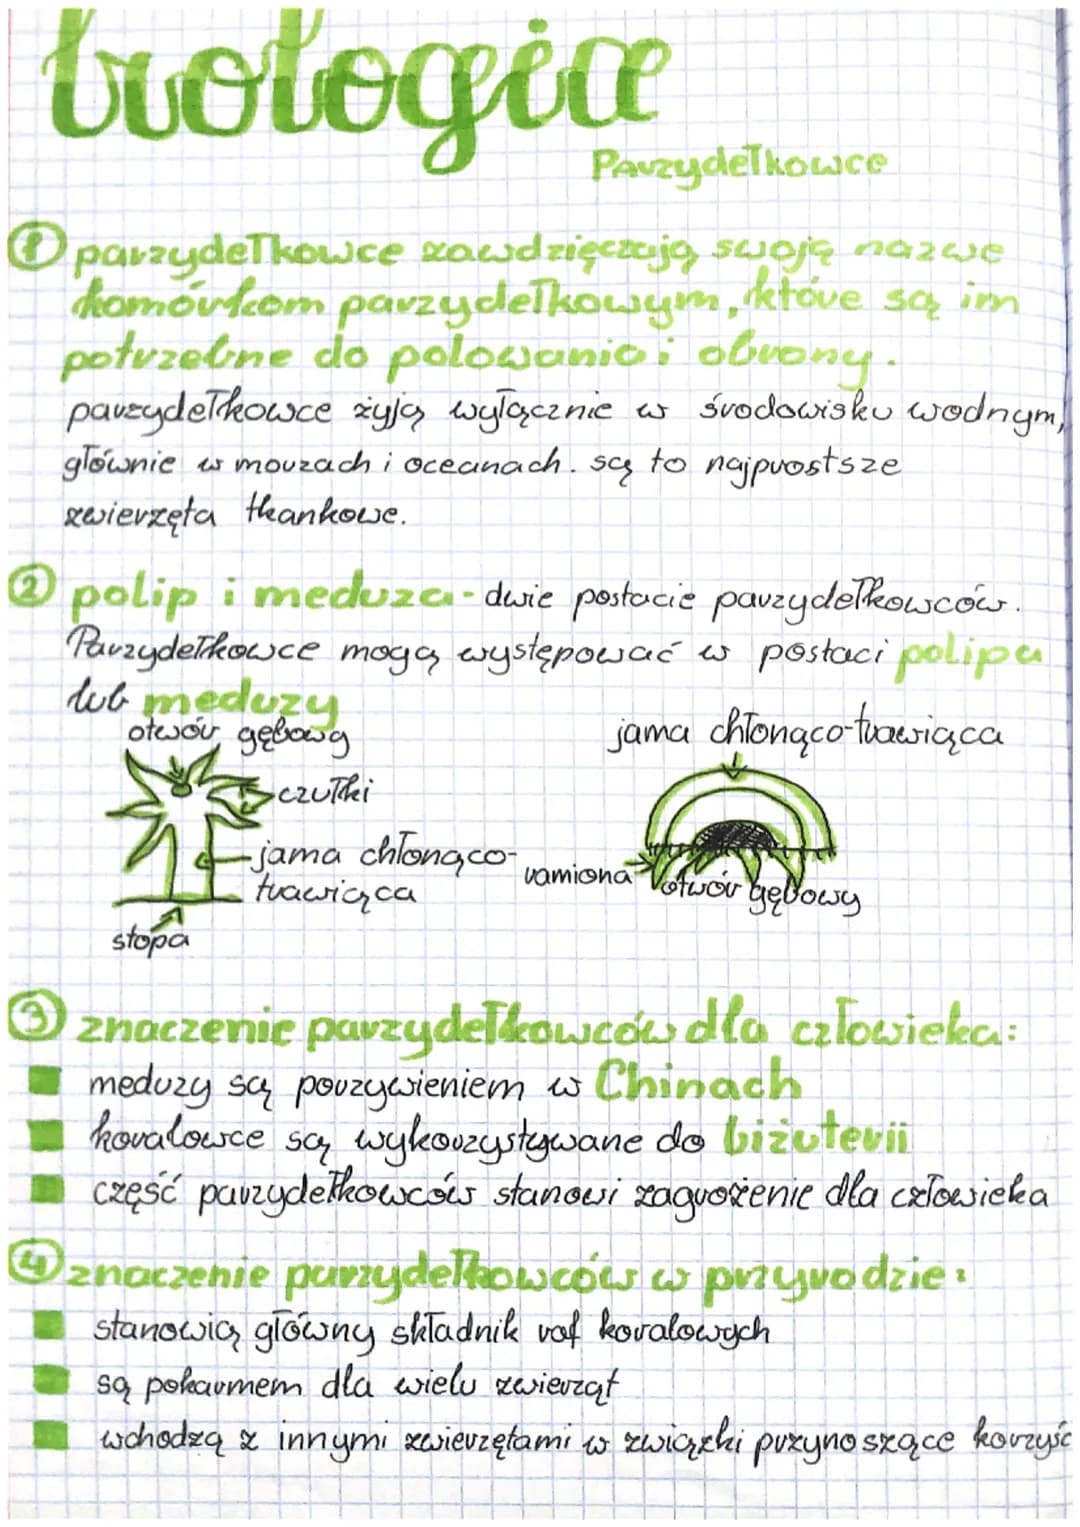 biologia
Parzydełkowce
① parzydełkowce zawdzięczają swoją nazwe
komórkom parzydełkowym, które są im
potrzebne do polowania i obrony.
parzydełkowce żyją wyłącznie w środowisku wodnym,
głównie w morzach i oceanach. są to najprostsze
zwierzęta tkankowe.
② polip i meduza - dwie postacie parzydełkowców.
Parzydełkowce mogą występować w postaci polipa
lub meduzy
otwór gębowy
czułki
jama chłonąco-
trawiąca
stopa
jama chłonąco-trawiąca
ramiona
otwór gębowy
③ znaczenie parzydełkowców dla człowieka:
meduzy są pożywieniem w Chinach
koralowce są wykorzystywane do biżuterii
część parzydełkowców stanowi zagrożenie dla człowieka
④ znaczenie parzydełkowców w przyrodzie:
stanowią główny składnik raf koralowych
są pokarmem dla wielu zwierząt
wchodzą z innymi zwierzętami w związki przynoszące korzyść